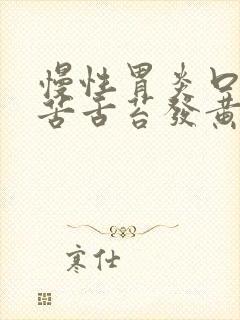 慢性胃炎口
苦舌苔發黃
寒仕